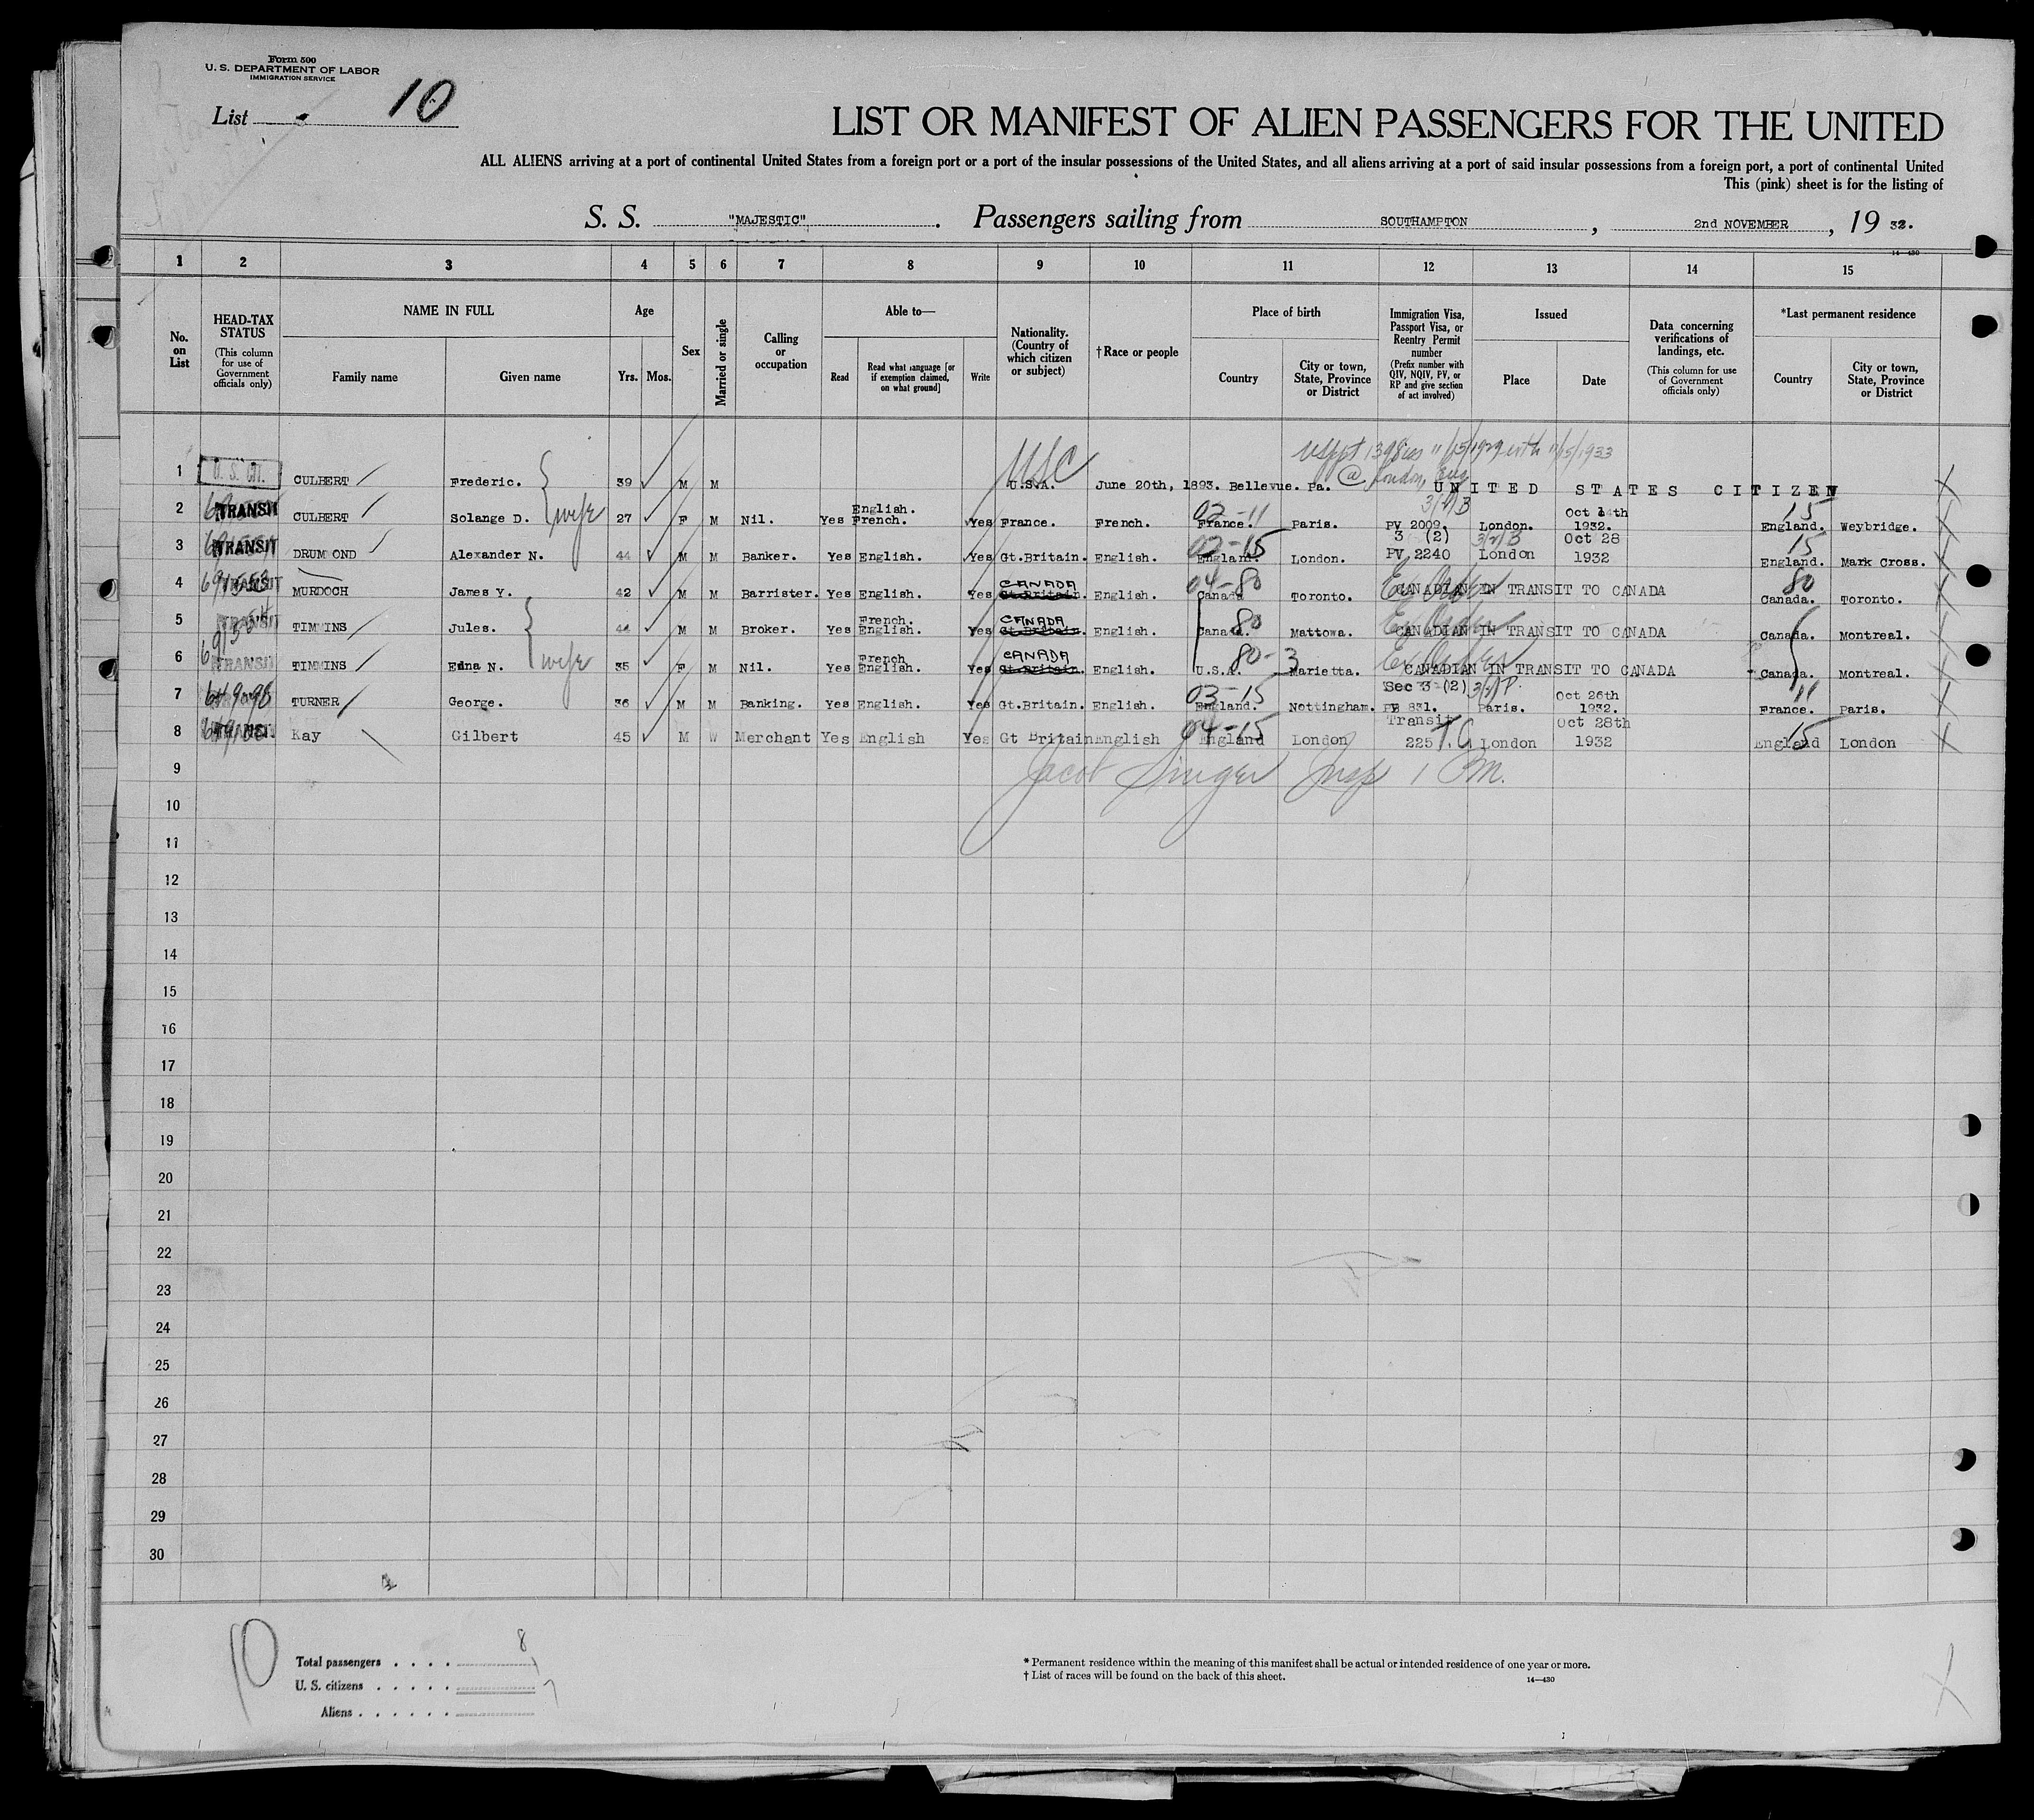 Form 500
U. S. DEPARTMENT OF LABOR
IMMIGRATION SERVICE
List 10
LIST OR MANIFEST OF ALIEN PASSENGERS FOR THE UNITED
ALL ALIENS arriving at a port of continental United States from a foreign port or a port of the insular possessions of the United States, and all aliens arriving at a port of said insular possessions from a foreign port, a port of continental United
This (pink) sheet is for the listing of
S. S. "MAJESTIC". Passengers sailing from SOUTHAMPTON, 2nd NOVEMBER, 19 32.
14—430
1 2 3 4 5 6 7 8 9 10 11 12 13 14 15
No. on List
HEAD-TAX STATUS
(This column for use of Government officials only)
NAME IN FULL
Family name Given name
Age
Yrs. Mos.
Sex
Married or single
Calling or occupation
Able to—
Read
Read what language [or if exemption claimed, on what ground]
Write
Nationality. (Country of which citizen or subject)
†Race or people
Place of birth
Country
City or town, State, Province or District
Immigration Visa, Passport Visa, or Reentry Permit number
(Prefix number with QIV, NQIV, PV, or RP and give section of act involved)
Issued
Place Date
Data concerning verifications of landings, etc.
(This column for use of Government officials only)
*Last permanent residence
Country
City or town, State, Province or District
USC
@ London, Eng
1 U. S. CIT. CULBERT Frederic. 39 M M U.S.A. June 20th, 1893. Bellevue. Pa. UNITED STATES CITIZEN
2 TRANSIT CULBERT Solange D. wife 27 F M Nil. Yes English. French. Yes France. French. 02-11 France. Paris. PV 2009. London. Oct 14th 1932. 15 England. Weybridge.
3 TRANSIT DRUMMOND Alexander N. 44 M M Banker. Yes English. Yes Gt.Britain. English. 02-15 England. London. 3 (2) PV 2240 London Oct 28 1932 15 England. Mark Cross.
4 TRANSIT MURDOCH James Y. 42 M M Barrister. Yes English. Yes CANADA Gt.Britain. English. 04-80 Canada Toronto. CANADIAN IN TRANSIT TO CANADA 80 Canada. Toronto.
5 TRANSIT TIMMINS Jules. 44 M M Broker. Yes French. English. Yes CANADA Gt.Britain. English. 80 Canada. Mattowa. CANADIAN IN TRANSIT TO CANADA Canada. Montreal.
6 TRANSIT TIMMINS Edna N. wife 35 F M Nil. Yes French English. Yes CANADA Gt.Britain. English. 80-3 U.S.A. Marietta. CANADIAN IN TRANSIT TO CANADA Canada. Montreal.
7 TURNER George. 36 M M Banking. Yes English. Yes Gt.Britain. English. 03-15 England. Nottingham. Sec 3 (2) 831. Paris. Oct 26th 1932. 11 France. Paris.
8 TRANSIT Kay Gilbert 45 M W Merchant Yes English Yes Gt Britain English 04-15 England London Transit 225 London Oct 28th 1932 15 England London
9 Jacob Singer Insp
10
11
12
13
14
15
16
17
18
19
20
21
22
23
24
25
26
27
28
29
30
10
Total passengers . . . . 8
U. S. citizens . . . . . 1
Aliens . . . . . . 7
* Permanent residence within the meaning of this manifest shall be actual or intended residence of one year or more.
† List of races will be found on the back of this sheet.
14—430